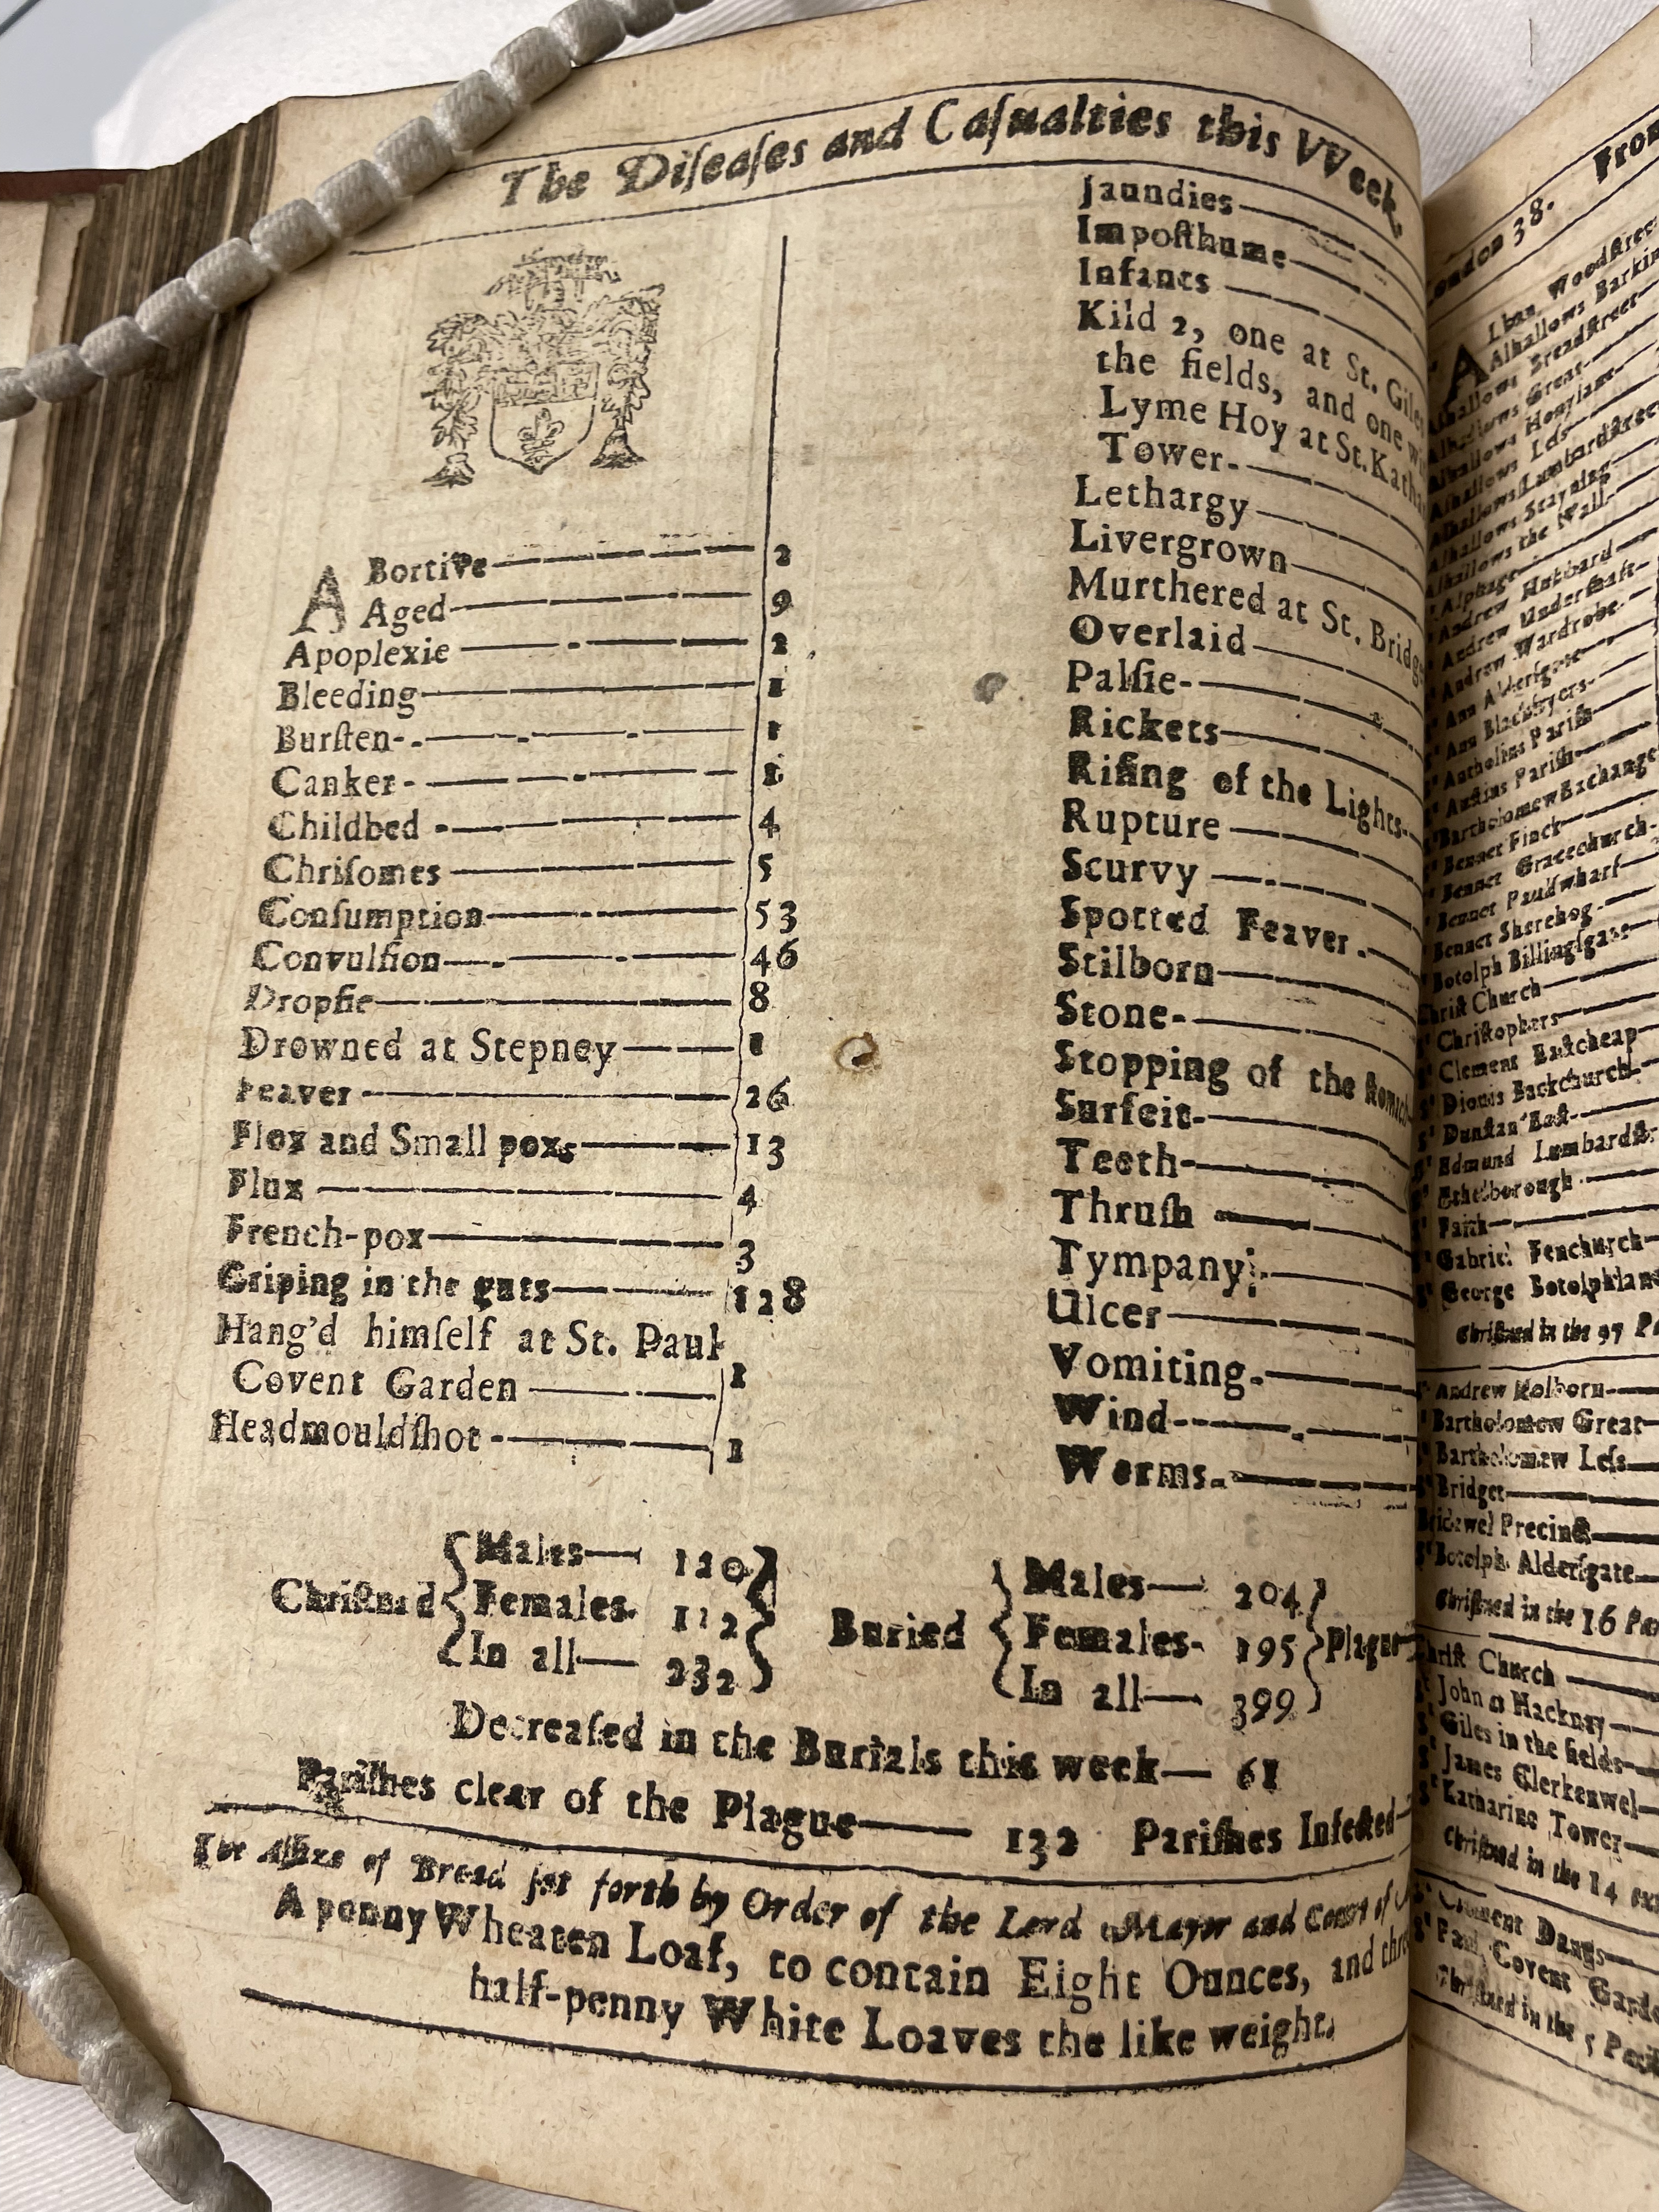 The Diſeaſes and Caſualties this VVeek.
ABortive 2
Aged 9
Apoplexie 2
Bleeding 1
Burſten 1
Canker 1
Childbed 4
Chriſomes 5
Conſumption 53
Convulſion 46
Dropſie 8
Drowned at Stepney 1
Feaver 26
Flox and Small pox 13
Flux 4
French-pox 3
Griping in the guts 128
Hang'd himſelf at St. Paul
Covent Garden 1
Headmouldſhot 1
Jaundies
Impoſthume
Infants
Kild 2, one at St. Giles
the fields, and one
Lyme Hoy at St. Katha
Tower
Lethargy
Livergrown
Murthered at St. Bridg
Overlaid
Palſie
Rickets
Riſing of the Lights
Rupture
Scurvy
Spotted Feaver
Stilborn
Stone
Stopping of the ſtomach
Surfeit
Teeth
Thruſh
Tympany
Ulcer
Vomiting
Wind
Worms
Chriſtned
Males 120
Females 112
In all 232
Buried
Males 204
Females 195
In all 399
Plague
Decreaſed in the Burials this week 61
Pariſhes clear of the Plague 132 Pariſhes Infected
The Aſſize of Bread ſet forth by Order of the Lord Mayor and Court of
A penny Wheaten Loaf, to contain Eight Ounces, and
half-penny White Loaves the like weight.
London 38. From
Alban Woodſtreet
Alhallows Barkin
Alhallows Breadſtreet
Alhallows Great
Alhallows Honylane
Alhallows Leſs
Alhallows Lumbardſtreet
Alhallows Stayning
Alhallows the Wall
Alphage
Andrew Hubbard
Andrew Underſhaft
Andrew Wardrobe
Ann Alderſgate
Ann Blackfryers
Antholins Pariſh
Auſtins Pariſh
Bartholomew Exchange
Bennet Finck
Bennet Gracechurch
Bennet Paulſwharf
Bennet Sherehog
Botolph Billingſgate
Chriſt Church
Chriſtophers
Clement Eaſtcheap
Dionis Backchurch
Dunſtan Eaſt
Edmund Lumbardſtr
Ethelborough
Faith
Gabriel Fenchurch
George Botolphlane
Chriſtned in the 97 Pa
Andrew Holborn
Bartholomew Great
Bartholomew Leſs
Bridget
Bridewel Precinct
Botolph Alderſgate
Chriſtned in the 16 Par
Chriſt Church
John at Hackney
Giles in the fields
James Clerkenwel
Katharine Tower
Chriſtned in the 14
Clement Danes
Paul Covent Garde
Chriſtned in the 5 Pariſ